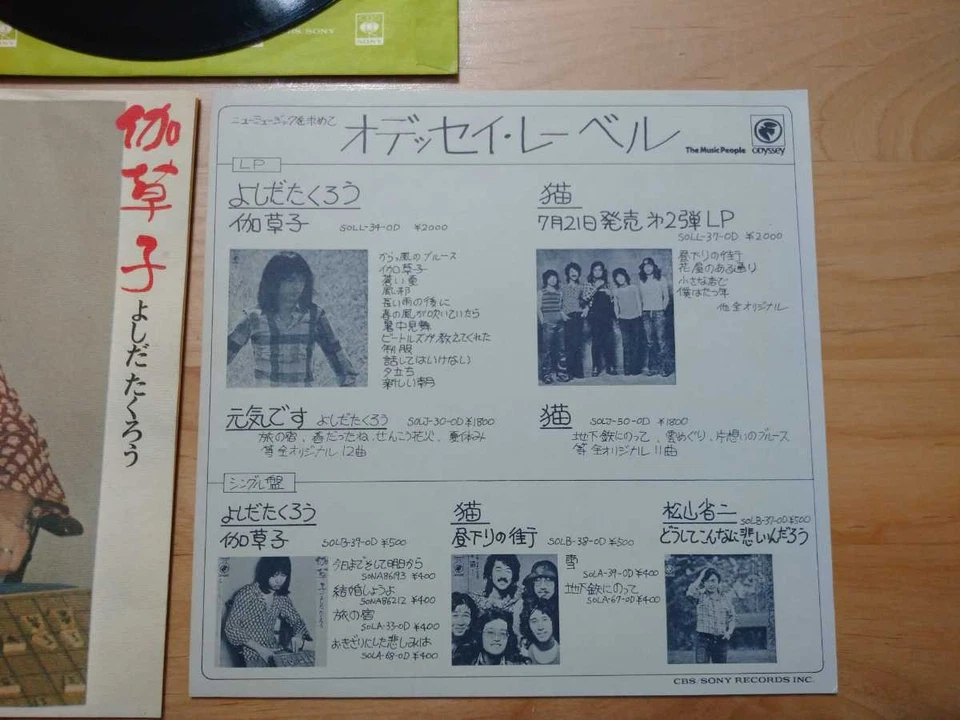 CBS/SONY
SONY
SONY
伽草子
よしだたくろう
ニューミュージックを求めて
オデッセイ・レーベル
The Music People
Odyssey
LP
よしだたくろう
伽草子 SOLL-34-OD ¥2000
からっ風のブルース
伽草子
蒼い夏
風邪
長い雨の後に
春の風が吹いていたら
暑中見舞
ビートルズが教えてくれた
制服
話してはいけない
夕立ち
新しい朝
猫
7月21日発売 第2弾LP
SOLL-37-OD ¥2000
昼下りの街
花屋のある通り
小さな店で
僕は
他 全オリジナル
元気です よしだたくろう SOLJ-30-OD ¥1800
旅の宿、春だったね、せんこう花火、夏休み
等 全オリジナル 12曲
猫 SOLJ-50-OD ¥1800
地下鉄にのって、雲めぐり、片想いのブルース
等 全オリジナル 11曲
シングル盤
よしだたくろう
伽草子 SOLB-39-OD ¥500
今日までそして明日から
SONA86193 ¥400
結婚しようよ
SONA86212 ¥400
旅の宿
SOLA-33-OD ¥400
おきざりにした悲しみは
SOLA-68-OD ¥400
伽草子
猫
昼下りの街 SOLB-38-OD ¥500
雪
SOLA-39-OD ¥400
地下鉄にのって
SOLA-67-OD ¥400
松山省二
SOLB-37-OD ¥500
どうしてこんなに悲しいんだろう
CBS/SONY RECORDS INC.